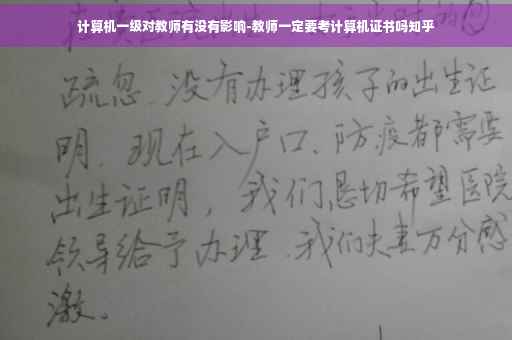 计算机一级对教师有没有影响-教师一定要考计算机证书吗知乎
疏忽、没有办理孩子的出生证
明。现在入户口、防疫都需要
出生证明，我们恳切希望医院
领导给予办理、我们夫妻万分感
激。